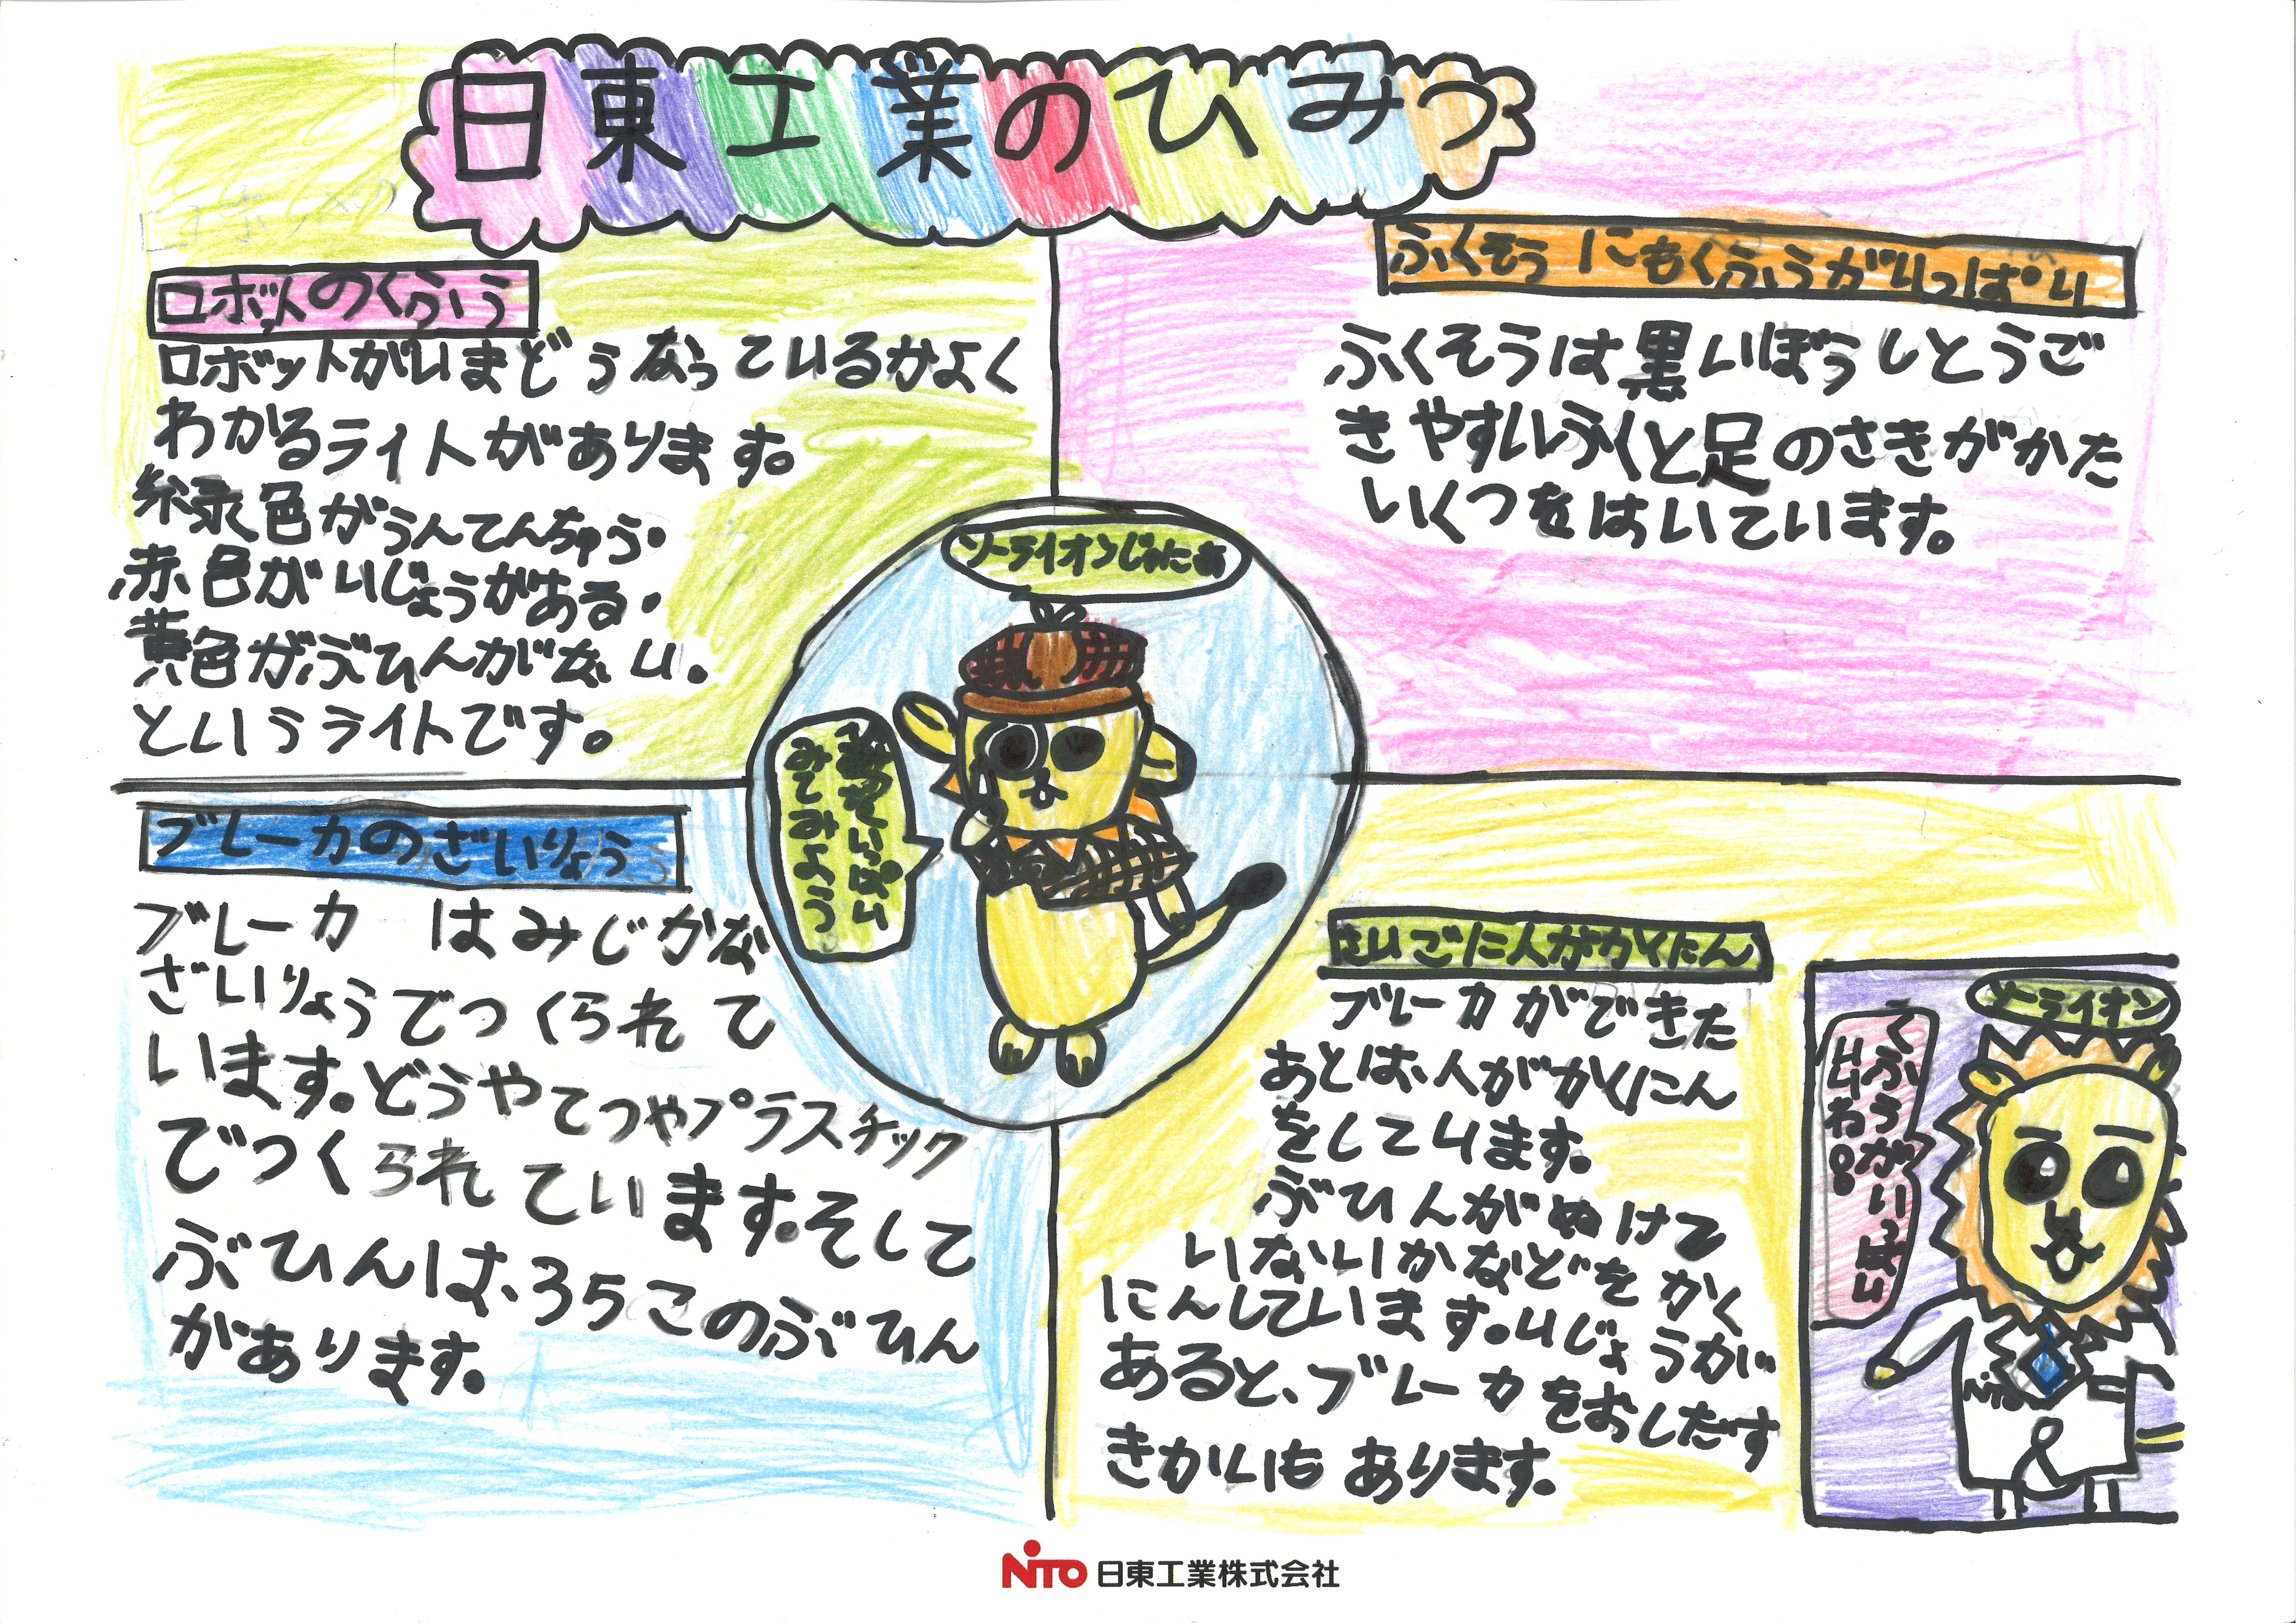 日東工業のひみつ
ロボットのくふう
ロボットがいまどうなっているかよく
わかるライトがあります。
緑色がうんてんちゅう・
赤色がいじょうがある・
黄色がぶひんがない・
というライトです。
ふくそうにもくふうがいっぱい
ふくそうは黒いぼうしとうご
きやすいふくと足のさきがかた
いくつをはいています。
みてみよう
ブレーカのざいりょう
ブレーカ はみじかな
ざいりょうでつくられて
います。どうやてつやプラスチック
でつくられています。そして
ぶひんは、35このぶひん
があります。
さいごに人がかくにん
ブレーカができた
あとは、人がかくにん
をしています。
ぶひんがぬけて
いないかなどをかく
にんしています。いじょうが
あると、ブレーカをおしだす
きかいもあります。
ソーライオン
くふうがいっぱい
NiTO
NITO 日東工業株式会社